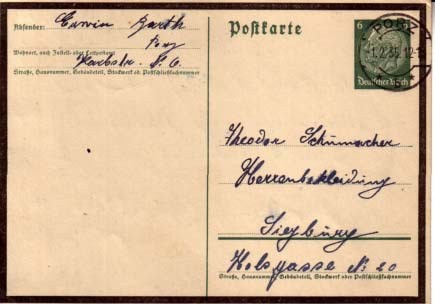 Absender: Erwin Barth
Porz
Wohnort, auch Zustell- oder Leitpostamt
Karlstr. N. 6
Straße, Hausnummer, Gebäudeteil, Stockwerk od. Postschließfachnummer
Postkarte
6
Deutsches Reich
PORZ
1.2.35. 12-1
Theodor Schumacher
Herrenbekleidung
Siegburg
Holzgasse N. 20
Straße, Hausnummer, Gebäudeteil, Stockwerk oder Postschließfachnummer